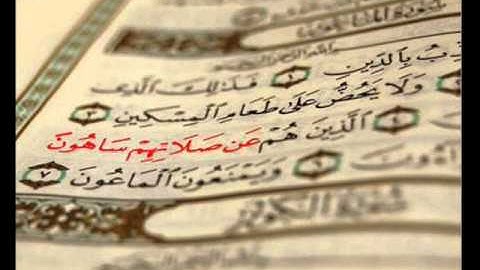 بِالدِّينِ ١ فَذَٰلِكَ الَّذِي
وَلَا يَحُضُّ عَلَىٰ طَعَامِ الْمِسْكِينِ ٣
٤ الَّذِينَ هُمْ عَن صَلَاتِهِمْ سَاهُونَ
٦ وَيَمْنَعُونَ الْمَاعُونَ ٧
سُورَةُ الْكَوْثَرِ